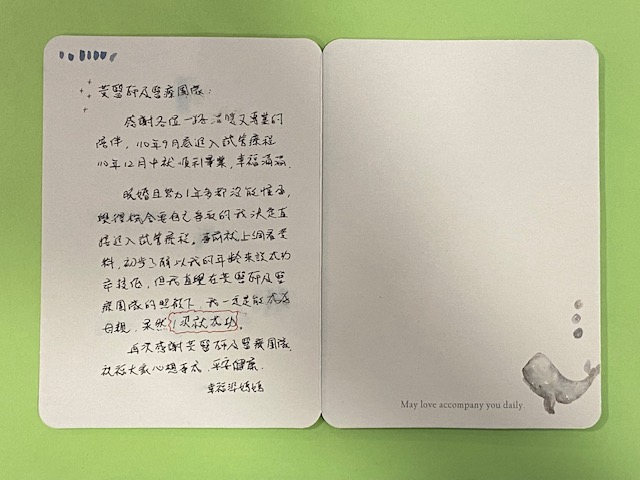 黃醫師及醫療團隊：
感謝各位一路溫暖又專業的
陪伴，110年9月底進入試管療程
110年12月中就順利畢業，幸福滿滿。
晚婚且努力1年多都沒能懷孕，
覺得機會要自己爭取的我決定直
接進入試管療程。當前就上網看資
料，初步了解以我的年齡來說成功
率較低，但我直覺在黃醫師及醫
療團隊的照顧下，我一定是能成為
母親，果然1次就成功。
再次感謝黃醫師及醫療團隊，
祝福大家心想事成，平安健康。
幸福媽媽
May love accompany you daily.